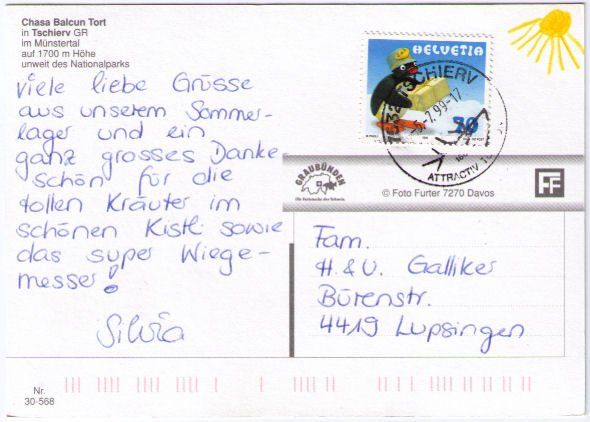 Chasa Balcun Tort
in Tschierv GR
im Münstertal
auf 1700 m Höhe
unweit des Nationalparks
Viele liebe Grüsse
aus unserem Sommer-
lager und ein
ganz grosses Danke-
schön für die
tollen Kräuter im
schönen Kistli sowie
das super Wiege-
messer!
Silvia
Nr.
30-568
HELVETIA
70
TSCHIERV
-5.-7.99-17
ATTRACTIV
GRAUBÜNDEN
Die Ferienecke der Schweiz.
© Foto Furter 7270 Davos
FF
Fam.
H. & U. Galliker
Bürenstr.
4419 Lupsingen